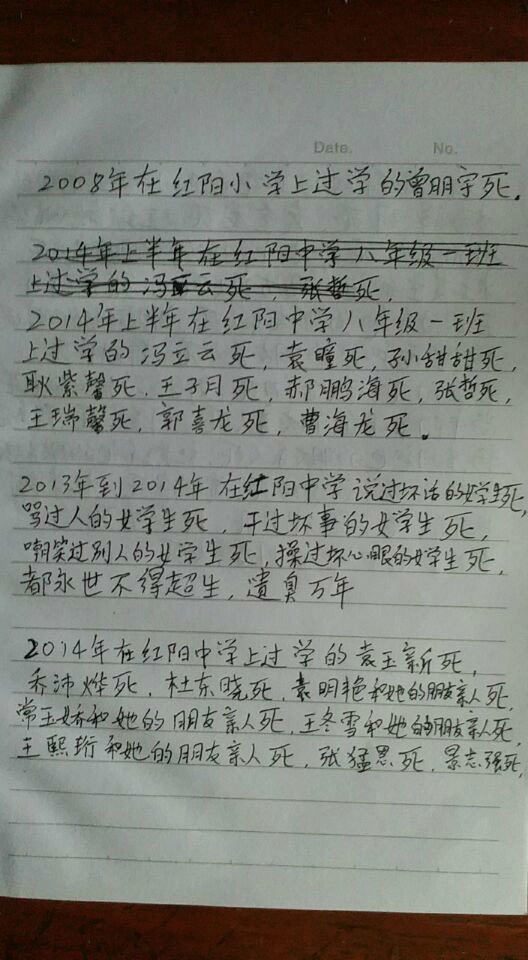 Date. No.
2008年在红阳小学上过学的曾明宇死。
2014年上半年在红阳中学八年级一班
上过学的冯立云死，张哲死，
2014年上半年在红阳中学八年级一班
上过学的冯立云死，袁瞳死，孙甜甜死，
耿紫馨死，王子月死，郝鹏海死，张哲死，
王瑞馨死，郭喜龙死，曹海龙死。
2013年到2014年在红阳中学说过坏话的女学生死，
骂过人的女学生死，干过坏事的女学生死，
嘲笑过别人的女学生死，操过坏心眼的女学生死，
都永世不得超生，遗臭万年
2014年在红阳中学上过学的袁玉新死，
乔沛烨死，杜东晓死，袁明艳和她的朋友亲人死，
常玉娇和她的朋友亲人死，王冬雪和她的朋友亲人死，
王熙珩和她的朋友亲人死，张猛思死，景志强死，